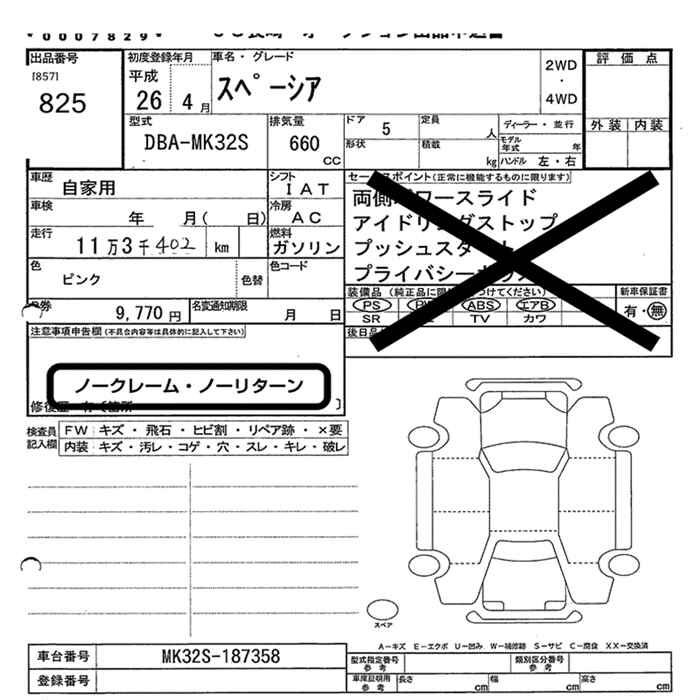 0007829
出品番号
[857]
825
初度登録年月
平成
26 4月
車名・グレード
スペーシア
2WD
・
4WD
評価点
外装 内装
型式
DBA-MK32S
排気量
660
CC
ドア 5
形状
定員
人
積載
kg
ディーラー・並行
モデル年式 年
ハンドル 左・右
車歴 自家用
シフト IAT
車検 年 月( 日)
冷房 AC
走行 11万3千402 km
燃料 ガソリン
色 ピンク
色替
色コード
セールスポイント(正常に機能するものに限ります)
両側パワースライド
アイドリングストップ
プッシュスタート
プライバシーガラス
9,770円
名変通知期限
月 日
装備品(純正品に限り つけてください)
PS PW ABS エアB
SR TV カワ
新車保証書
有・無
後日品
注意事項申告欄(不具合内容等は具体的に記入して下さい)
ノークレーム・ノーリターン
修復歴 有
検査員記入欄
FW キズ・飛石・ヒビ割・リペア跡・×要
内装:キズ・汚レ・コゲ・穴・スレ・キレ・破レ
スペア
A−キズ E−エクボ U−凹み W−補修跡 S−サビ C−腐食 XX−交換済
車台番号 MK32S-187358
登録番号
型式指定番号参考
類別区分番号参考
車庫証明用参考
長さ cm
幅 cm
高さ cm